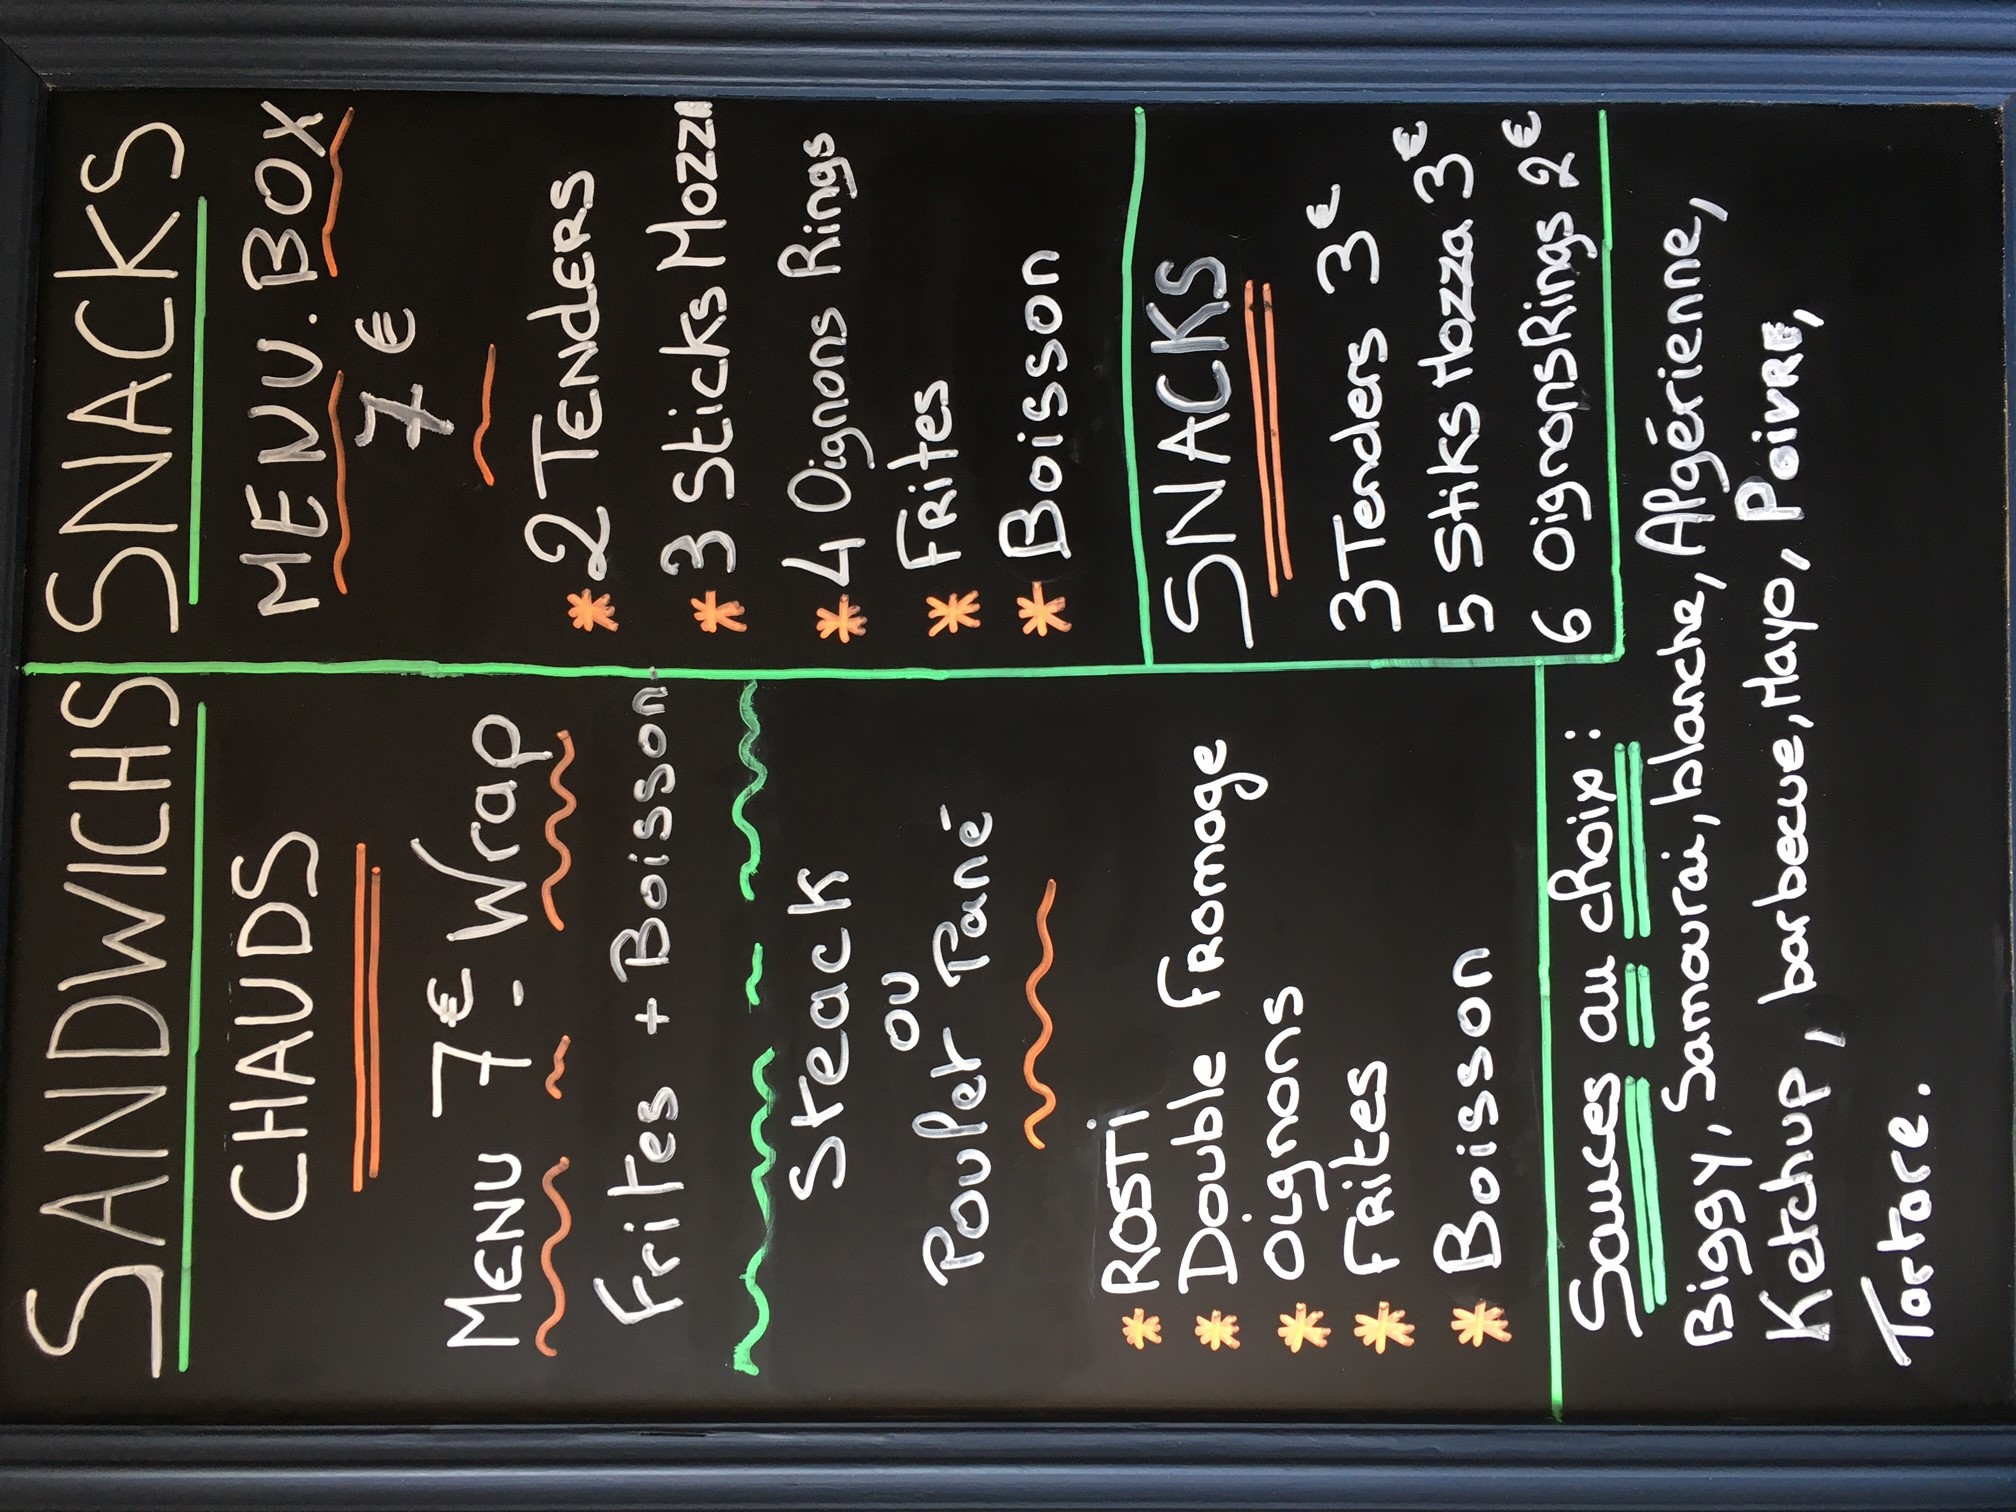 SANDWICHS
CHAUDS
MENU 7€ - Wrap
Frites + Boisson
Steack
ou
Poulet Pané
* ROSTI
* Double Fromage
* oignons
* FRites
* Boisson
SNACKS
MENU. BOX
7€
* 2 TENDERS
* 3 Sticks Mozza
* 4 Oignons Rings
* FRites
* Boisson
SNACKS
3 Tenders 3€
5 Stiks Mozza 3€
6 OignonsRings 2€
Sauces au choix:
Biggy, Samouraï, blanche, Algérienne,
Ketchup, barbecue, Mayo, Poivre,
Tartare.